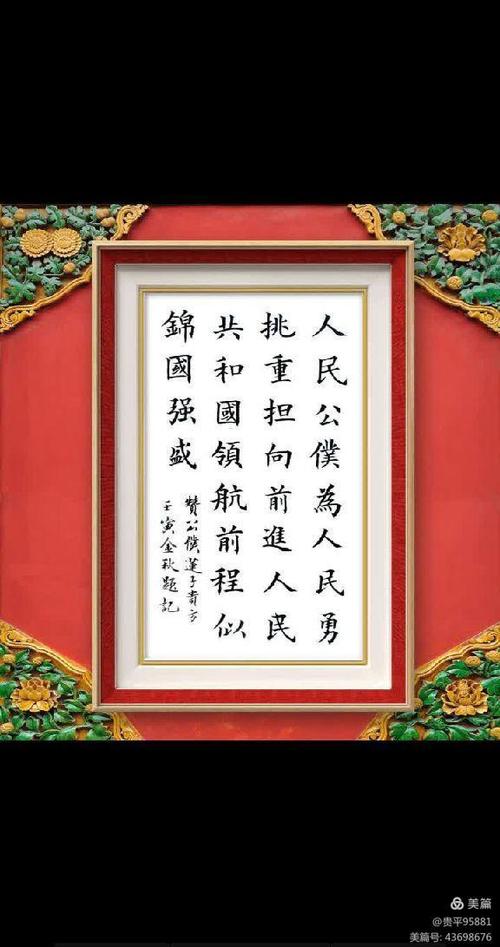 人民公僕為人民勇
挑重担向前進人民
共和國領航前程似
錦國强盛
贊公僕蓮子貴方
壬寅金秋題記
美篇
@贵平95881
美篇号: 43698676